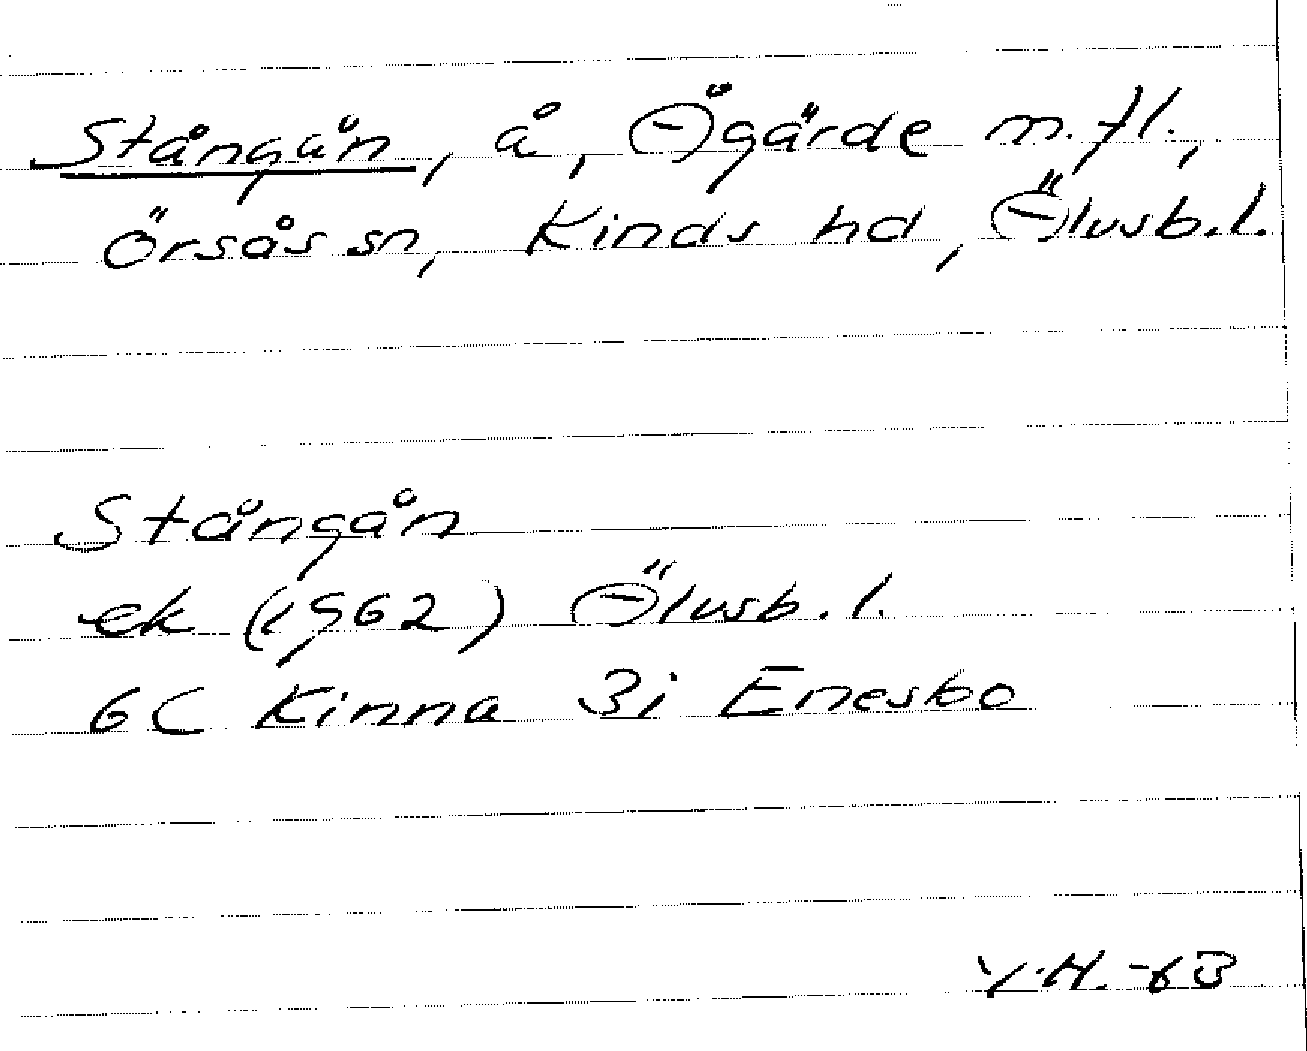 Stångån, å, Ögärde m.fl.,
Örsås sn, Kinds hd, Älvsb.l.
Stångån
ek (1962) Älvsb.l.
6C Kinna 3i Enesbo
Y.H. -63